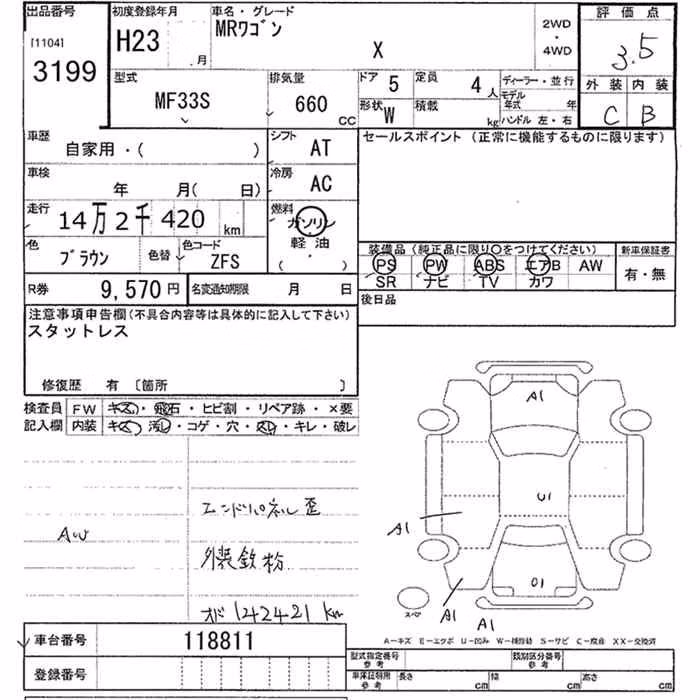 出品番号
[1104]
3199
初度登録年月
H23 月
車名・グレード
MRワゴン
X
2WD
・
4WD
評価点
3.5
外装 内装
C B
型式
MF33S
排気量
660 CC
ドア 5
定員 4 人
形状 W
積載 kg
ディーラー・並行
モデル
年式 年
ハンドル 左・右
車歴
自家用・( )
シフト
AT
セールスポイント (正常に機能するものに限ります)
車検
年 月( 日)
冷房
AC
走行
14万2千420 km
燃料
ガソリン
軽油
( )
色
ブラウン
色替
色コード
ZFS
装備品 (純正品に限り〇をつけてください)
PS PW ABS エアB AW
SR ナビ TV カワ
新車保証書
有・無
R券 9,570 円
名変通知期限 月 日
後日品
注意事項申告欄(不具合内容等は具体的に記入して下さい)
スタットレス
修復歴 有 〔箇所 〕
検査員
記入欄
FW キズ・飛石・ヒビ割・リペア跡・×要
内装 キズ・汚レ・コゲ・穴・スレ・キレ・破レ
エンドパネル歪
AW
外装鉄粉
オド 142421 km
A1
U1
A1
U1
A1
A1
スペア
A-キズ E-エクボ U-凹み W-補修跡 S-サビ C-腐食 XX-交換済
車台番号 118811
登録番号
型式指定番号
参考
類別区分番号
参考
車庫証明用
参考
長さ cm
幅 cm
高さ cm